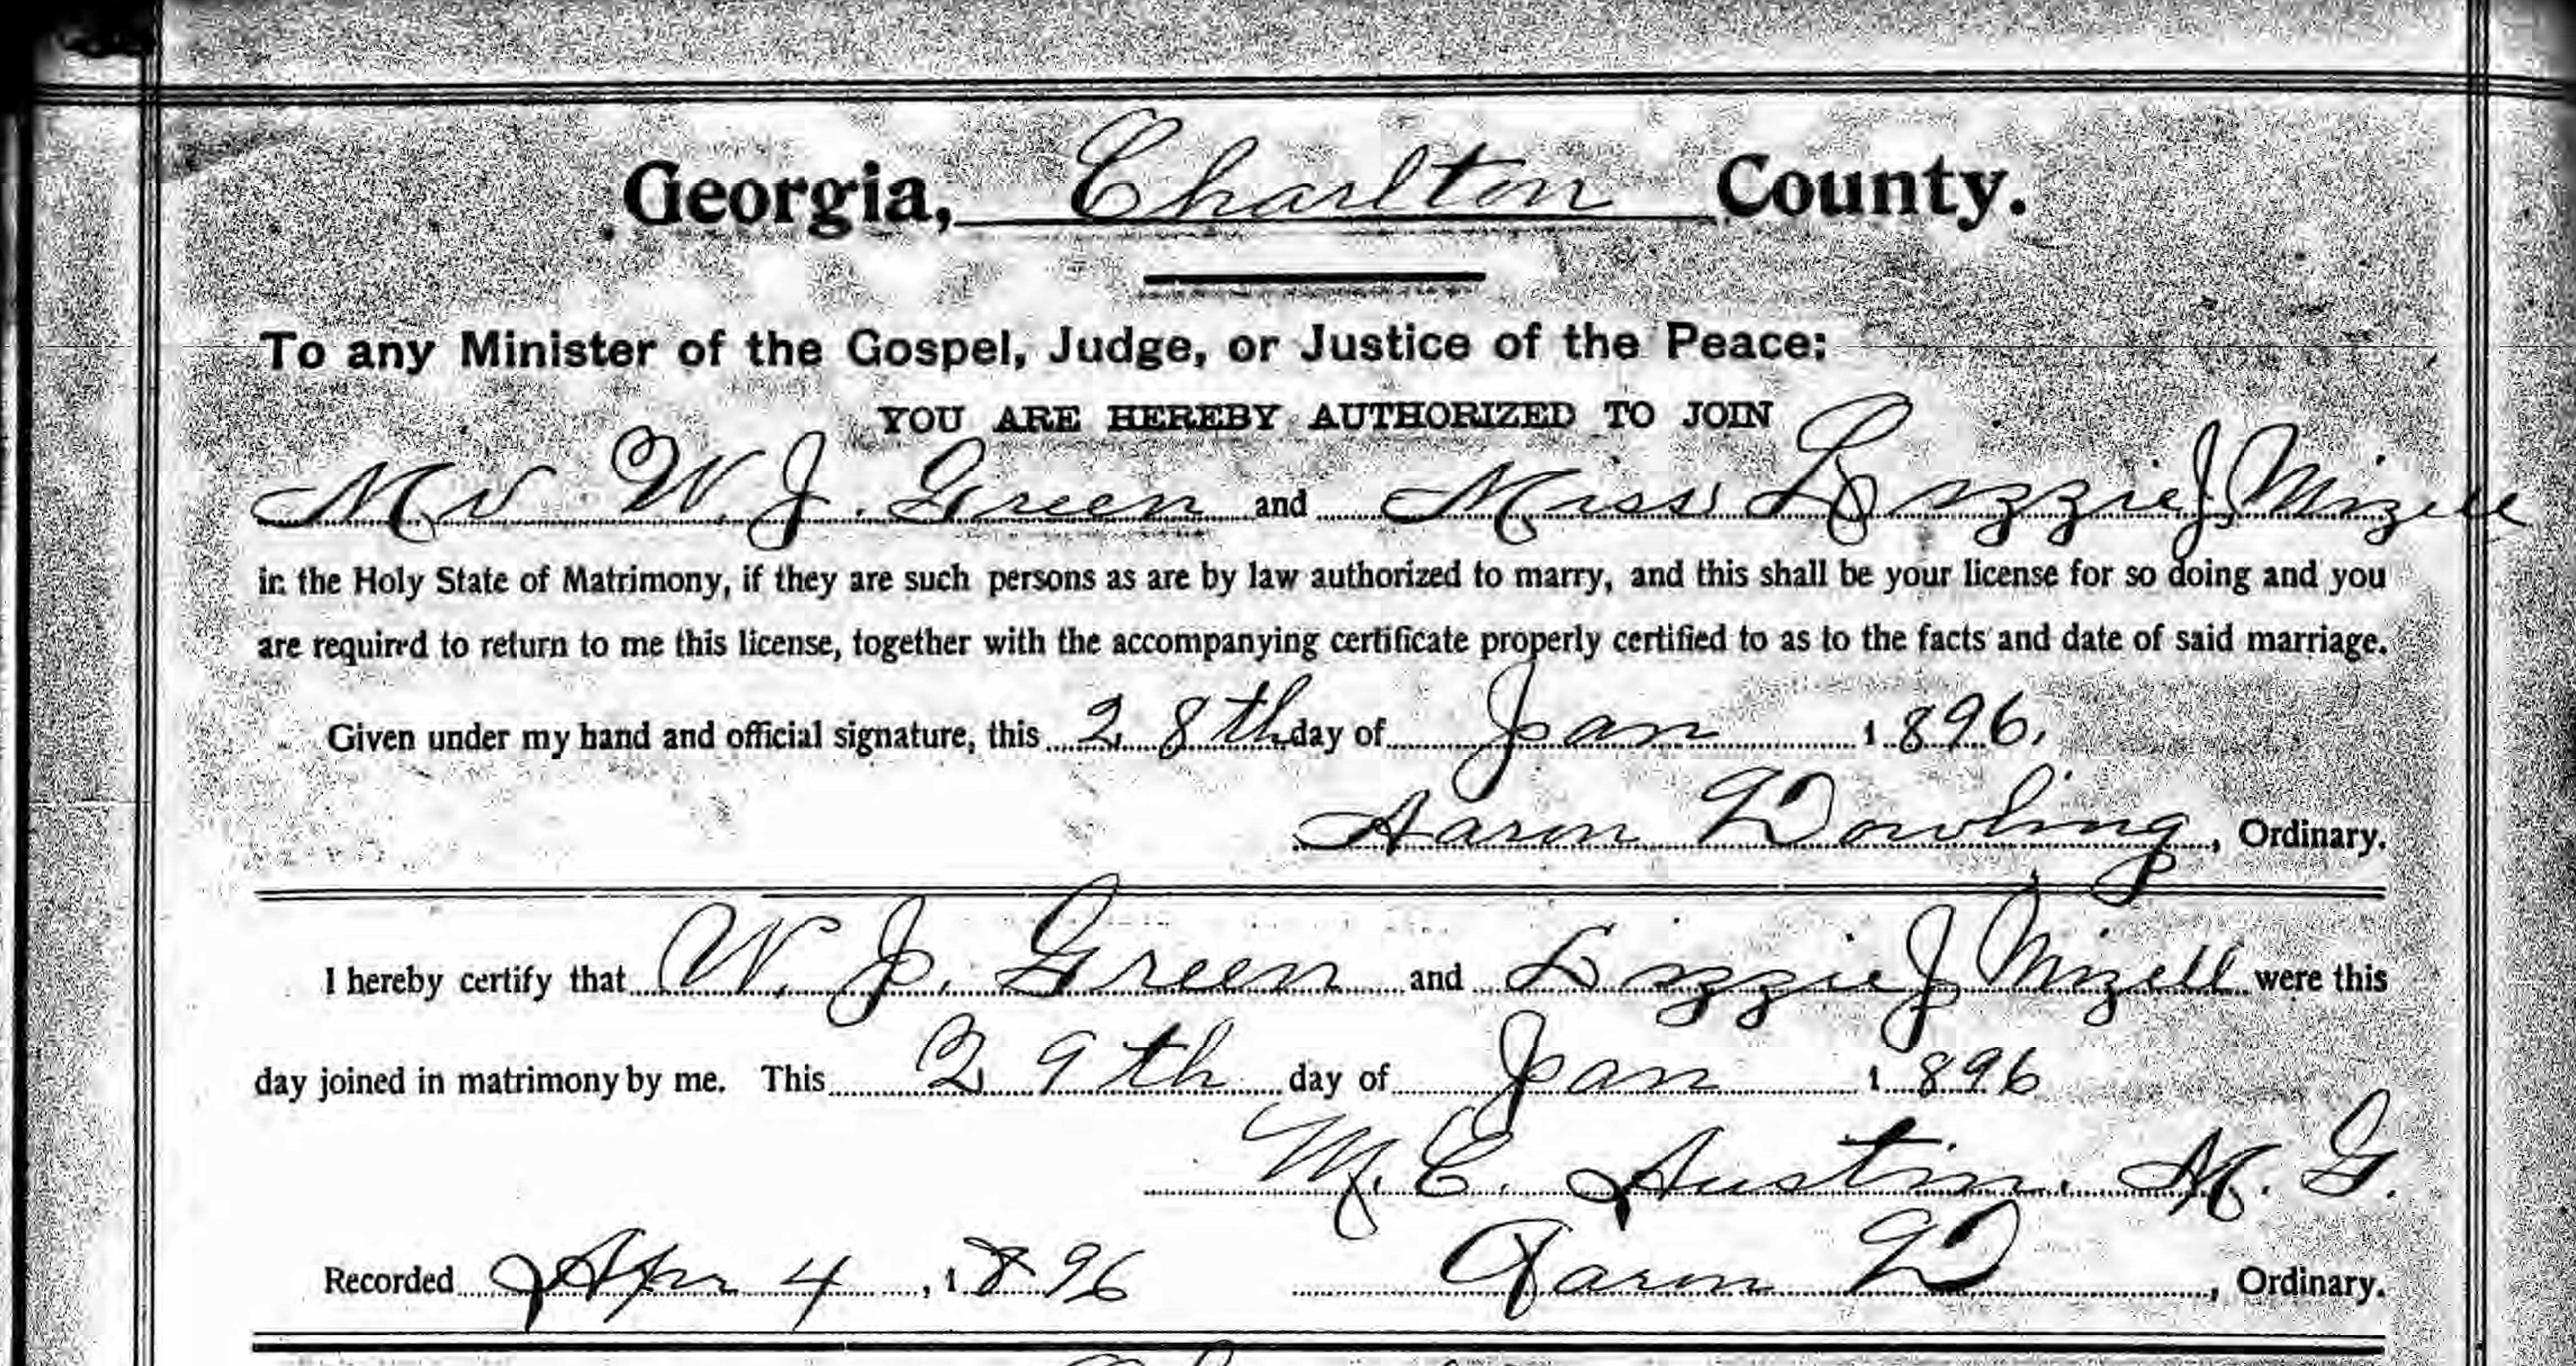 Georgia, Charlton County.
To any Minister of the Gospel, Judge, or Justice of the Peace:
YOU ARE HEREBY AUTHORIZED TO JOIN
Mr W. J. Green and Miss Lizzie J Mizell
in the Holy State of Matrimony, if they are such persons as are by law authorized to marry, and this shall be your license for so doing and you
are required to return to me this license, together with the accompanying certificate properly certified to as to the facts and date of said marriage.
Given under my hand and official signature, this 28th day of Jan 1896.
Aaron Dowling, Ordinary.
I hereby certify that W. J. Green and Lizzie J Mizell were this
day joined in matrimony by me. This 29th day of Jan 1896
M. C. Austin. M. G.
Recorded Apr 4, 1896 Aaron D, Ordinary.